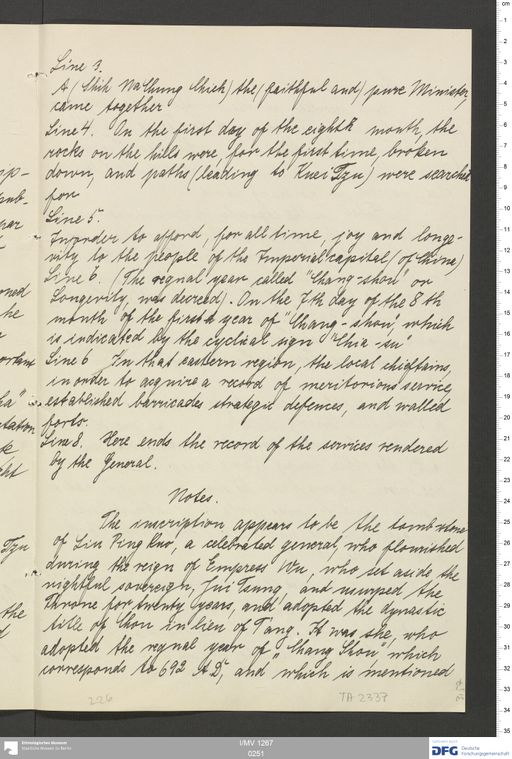 Line 3.
A (Shih Na Chung Chieh) the (faithful and) pure Minister,
came together
Line 4. On the first day of the eighth month, the
rocks on the hills were, for the first time, broken
down, and paths (leading to Kuei Tzu) were searched
for
Line 5.
In order to afford, for all time, joy and longe-
vity to the people of the Imperial capital (of China)
Line 6. (The regnal year called "Chang-shou" or
Longevity, was decreed). On the 7th day of the 8th
month of the first year of "Chang-shou", which
is indicated by the cyclical sign "Chia-su"
Line 6 In that eastern region, the local chieftains,
in order to acquire a record of meritorious service,
established barricades strategic defences, and walled
forts.
Line 8. Here ends the record of the services rendered
by the General.
Notes.
The inscription appears to be the tomb-stone
of Liu Ping Kuo, a celebrated general, who flourished
during the reign of Empress Wu, who set aside the
rightful sovereign, Jui Tsung, and usurped the
Throne for twenty years, and adopted the dynastic
title of Chou in lieu of T'ang. It was she, who
adopted the regnal year of "Chang Shou" which
corresponds to 692 A.D., and which is mentioned
226
TA 2337
I/MV 1267
0251
Ethnologisches Museum
Staatliche Museen zu Berlin
DFG Deutsche
Forschungsgemeinschaft